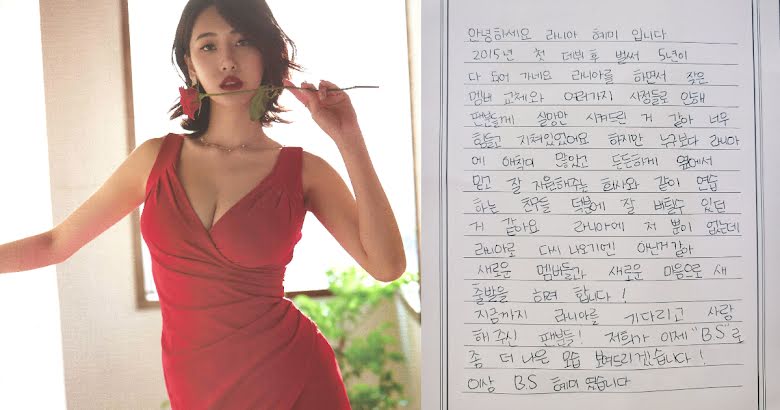 안녕하세요 라니아 혜미 입니다
2015년 첫 데뷔 후 벌써 5년이
다 되어 가네요 라니아를 하면서 잦은
멤버 교체와 여러가지 사정들로 인해
팬분들께 실망만 시켜드린 거 같아 너무
힘들고 지쳐있었어요 하지만 누구보다 라니아
에 애착이 많았고 든든하게 옆에서
믿고 잘 지원해주는 회사와 같이 연습
하는 친구들 덕분에 잘 버틸수 있던
거 같아요 라니아에 저 뿐이 없는데
라니아로 다시 나오기엔 아닌거 같아
새로운 멤버들과 새로운 마음으로 새
출발을 하려 합니다!
지금까지 라니아를 기다리고 사랑
해 주신 팬분들! 저희가 이제 "B.S"로
좀 더 나은 모습 보여드리겠습니다!
이상 B.S 혜미 였습니다